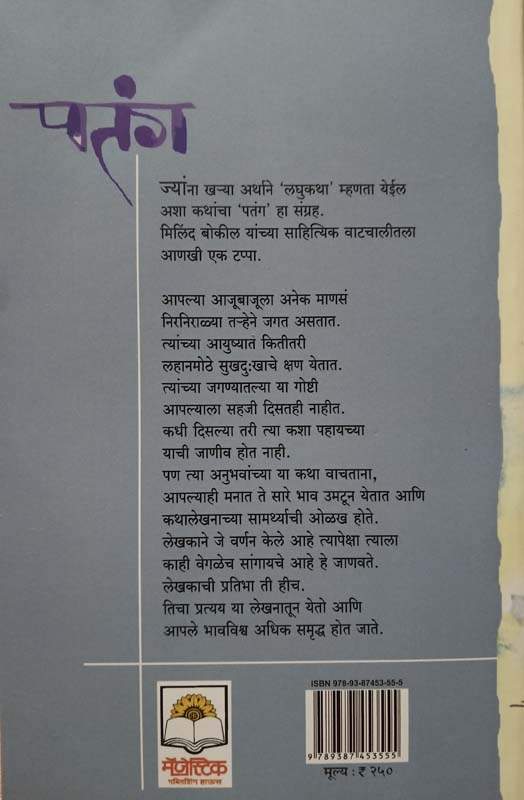 पतंग
ज्यांना खऱ्या अर्थाने 'लघुकथा' म्हणता येईल
अशा कथांचा 'पतंग' हा संग्रह.
मिलिंद बोकील यांच्या साहित्यिक वाटचालीतला
आणखी एक टप्पा.
आपल्या आजूबाजूला अनेक माणसं
निरनिराळ्या तऱ्हेने जगत असतात.
त्यांच्या आयुष्यात कितीतरी
लहानमोठे सुखदु:खाचे क्षण येतात.
त्यांच्या जगण्यातल्या या गोष्टी
आपल्याला सहजी दिसतही नाहीत.
कधी दिसल्या तरी त्या कशा पहायच्या
याची जाणीव होत नाही.
पण त्या अनुभवांच्या या कथा वाचताना,
आपल्याही मनात ते सारे भाव उमटून येतात आणि
कथालेखनाच्या सामर्थ्याची ओळख होते.
लेखकाने जे वर्णन केले आहे त्यापेक्षा त्याला
काही वेगळेच सांगायचे आहे हे जाणवते.
लेखकाची प्रतिभा ती हीच.
तिचा प्रत्यय या लेखनातून येतो आणि
आपले भावविश्व अधिक समृद्ध होत जाते.
मॅजेस्टिक
पब्लिशिंग हाऊस
ISBN 978-93-87453-55-5
9 789387 453555
मूल्य : ₹ २५०